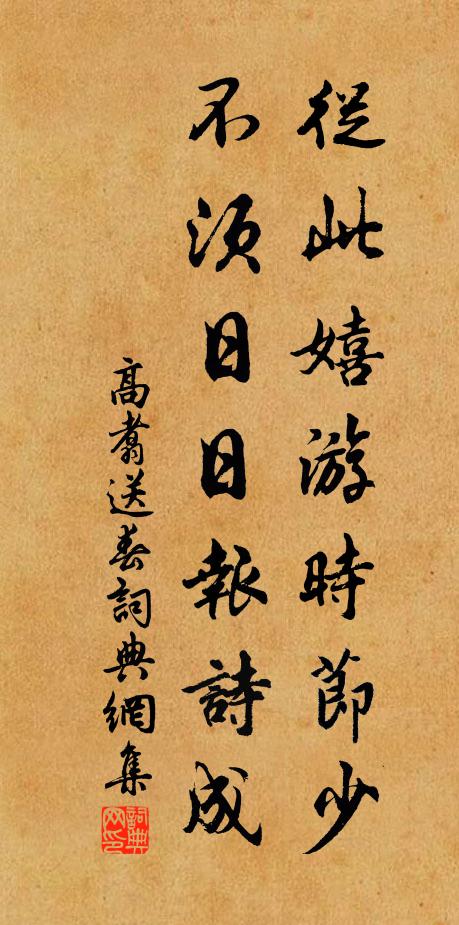 從此嬉游時節少
不須日日報詩成
高翥送春詞典網集
詞典网印